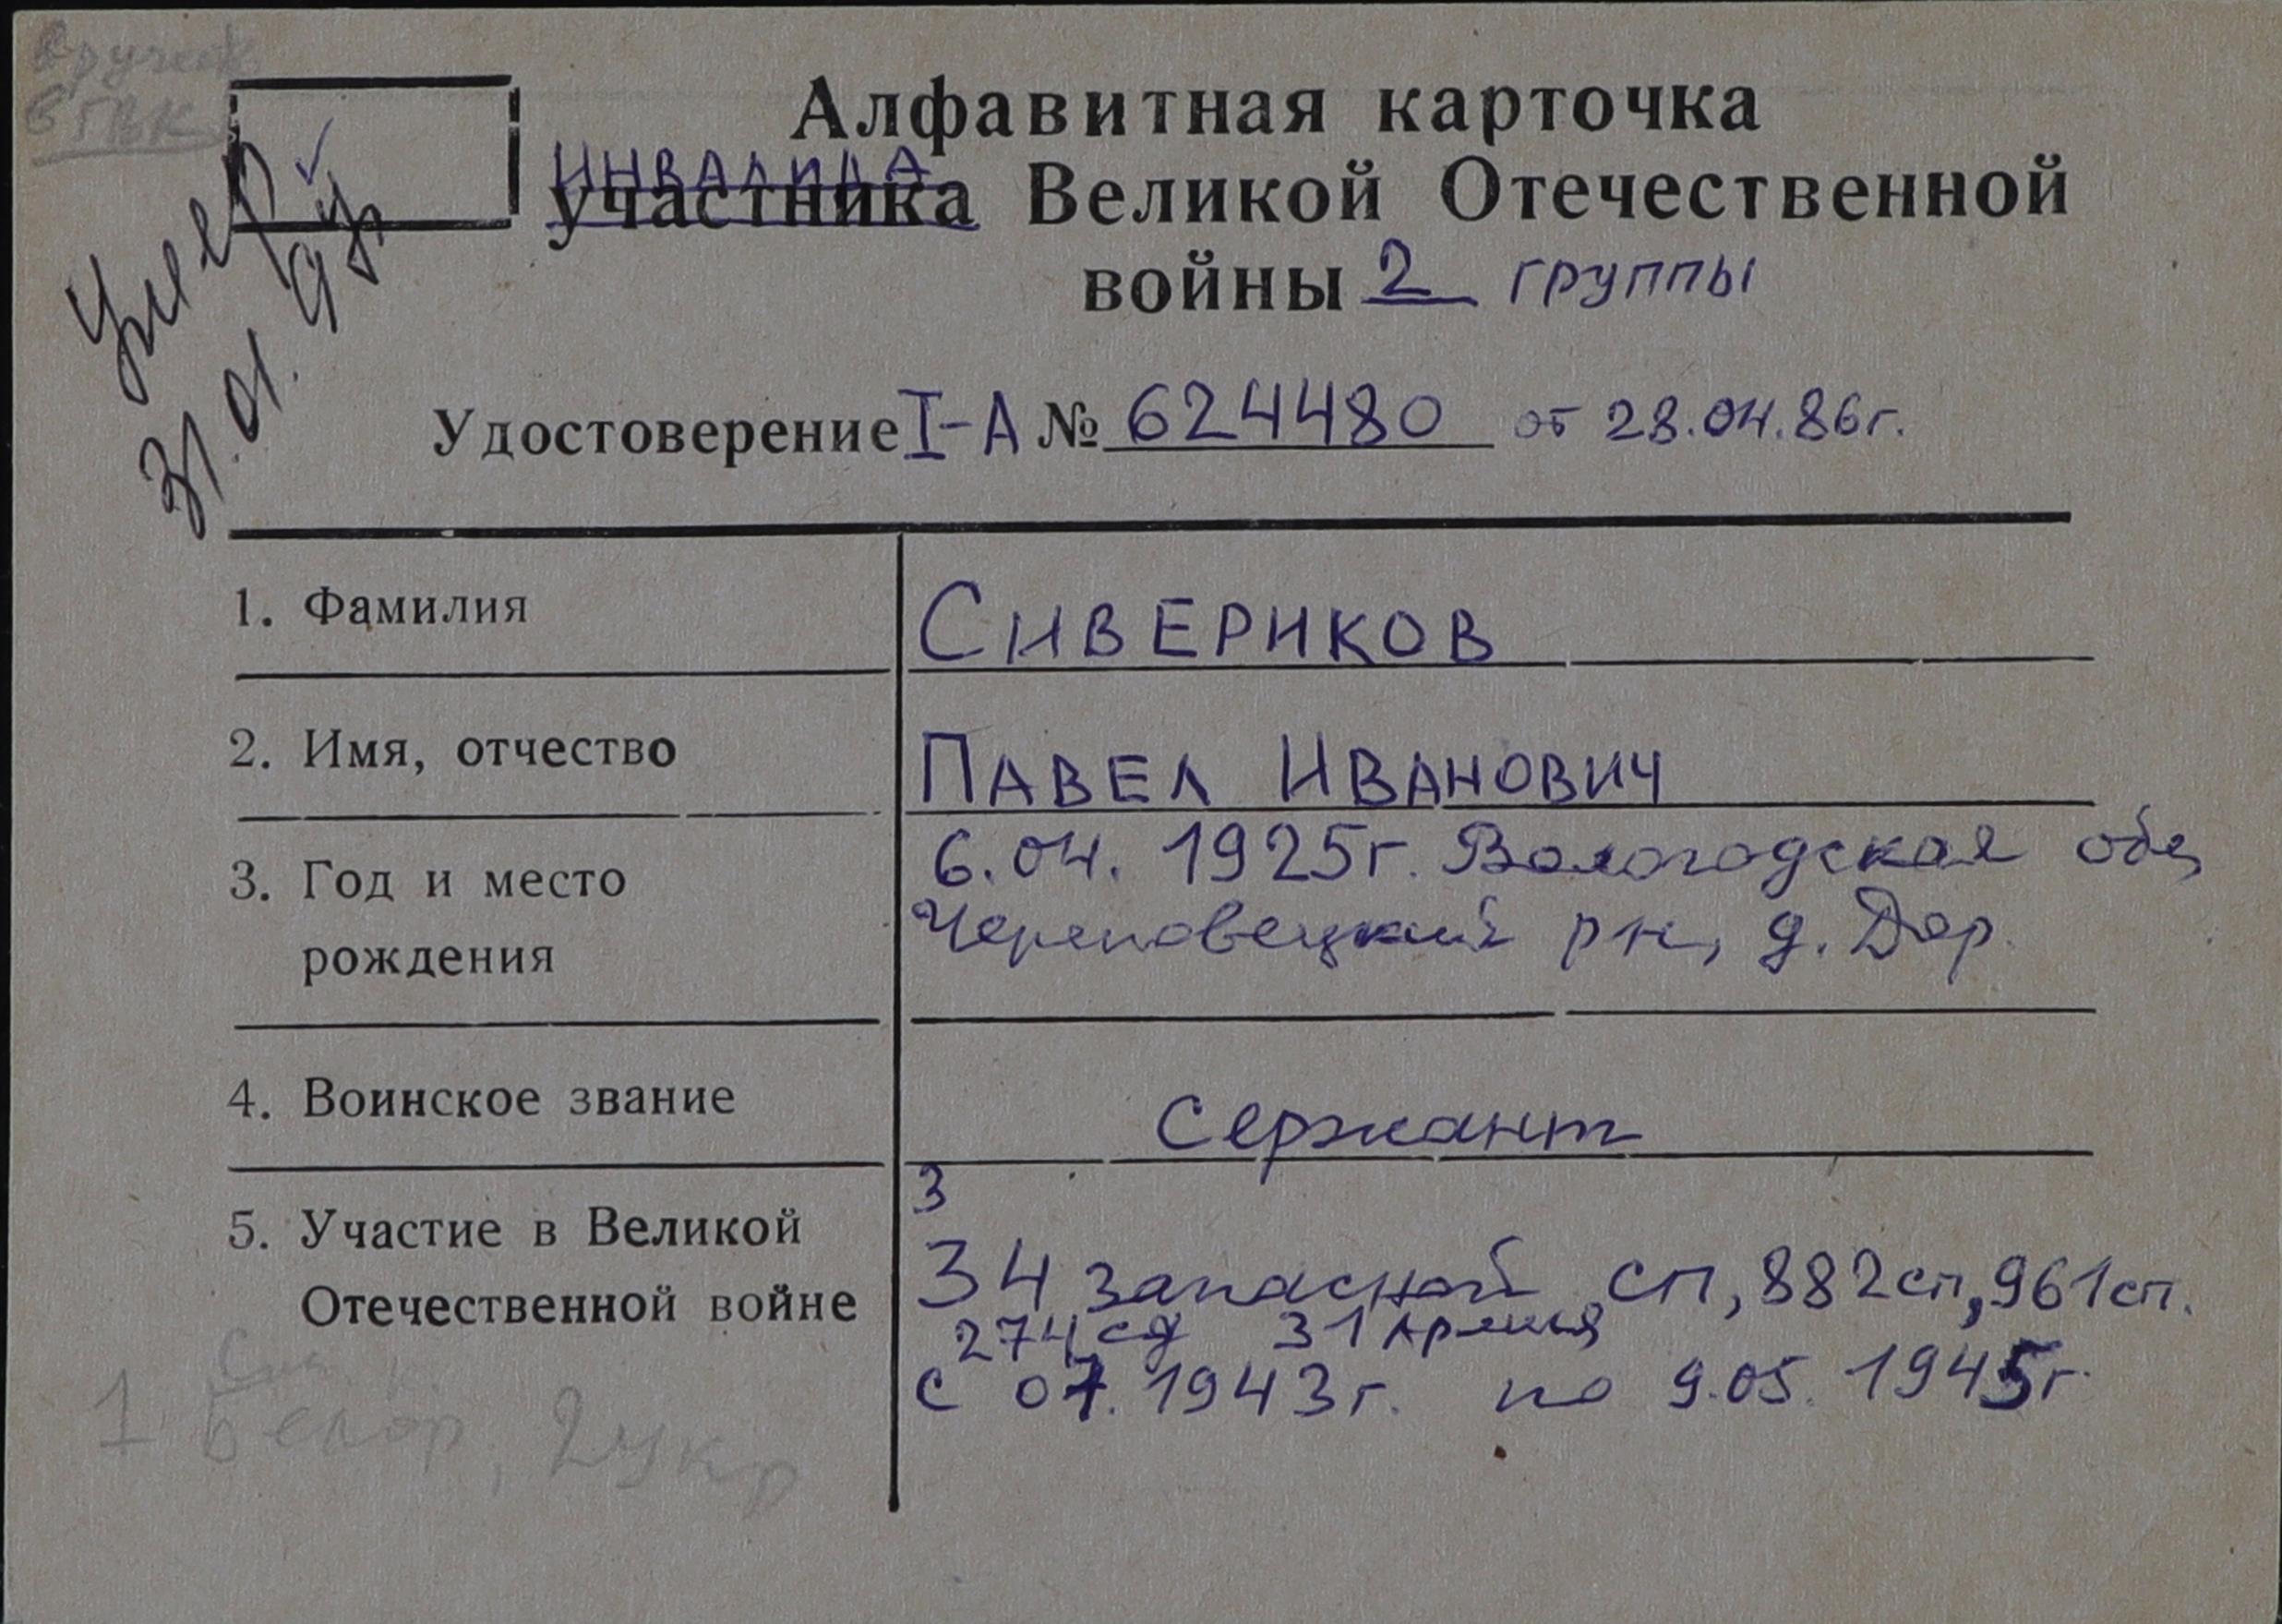 вручен
в ГВК
Умер
31.01.97
Алфавитная карточка
ИНВАЛИДА
участника Великой Отечественной
войны 2 группы
Удостоверение I-А № 624480 от 28.04.86г.
1. Фамилия СИВЕРИКОВ
2. Имя, отчество ПАВЕЛ ИВАНОВИЧ
3. Год и место 6.04.1925г. Вологодская обл,
рождения Череповецкий рн, д. Дор.
4. Воинское звание Сержант
3
5. Участие в Великой 34 запасной сп, 882сп, 961сп.
Отечественной войне 274 сд 31 Армия
с 07.1943г. по 9.05.1945г.
1 Белор, 2 Укр